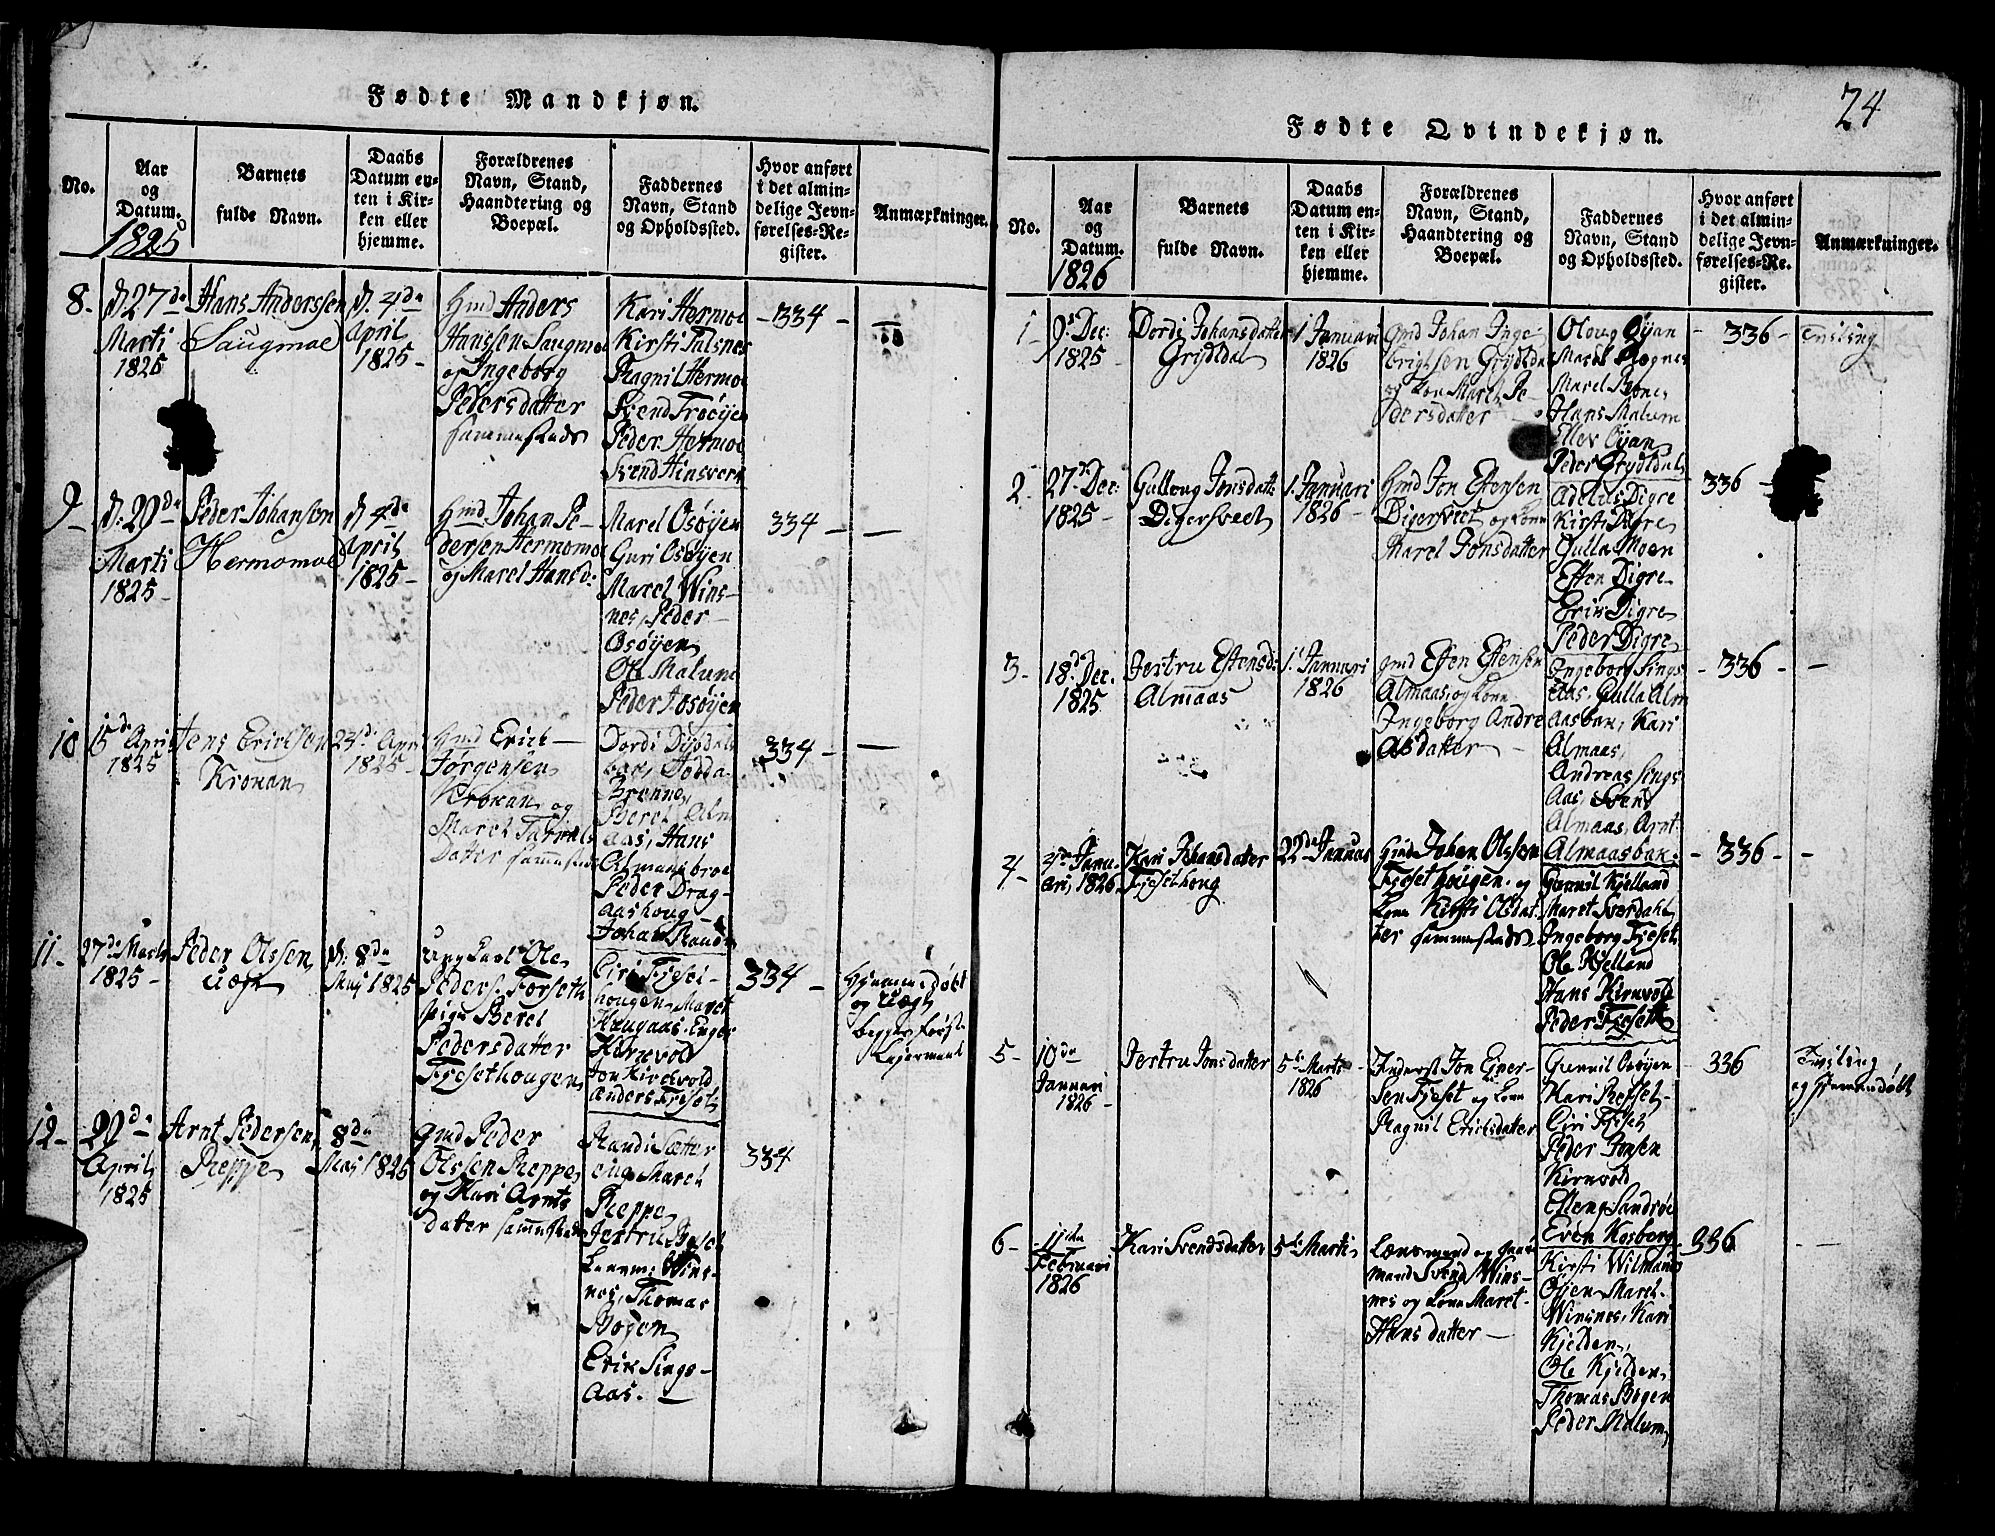 Fødte Mandkjøn.
No.
Aar
og
Datum.
1825
Barnets
fulde Navn.
Daabs
Datum en-
ten i Kir-
ken eller
hjemme.
Forældrenes
Navn, Stand,
Haandtering og
Boepæl.
Faddernes
Navn, Stand
og Opholdssted.
Hvor anført
i det almin-
delige Jevn-
førelses-Re-
gister.
Anmærkninger.
8-
d. 27de
Marti
1825
Hans Anderssen
Saugmoe
d. 4de
April
1825-
Gmd Anders
Hanssen Saugmoe
og Ingeborg
Pedersdatter
sammesteds
Kari Hermoe
Kirsti
Ragnil Hermoe
Svend Trøÿen
Peder Hermoe
Svend Hinsverk
-334-
9-
d. 29de
Marti
1825-
Peder Johansen
Hermomoe
d 4de
April
1825-
Gmd Johan Pe-
dersen Hermomoe
og Maret Hansd:
Maret Osøÿen
Guri Osøÿen
Maret Wins-
nes, Peder
Osøÿen
Ole Malum
Peder Josøÿen
334-
10
15de April
1825
Jens Ericksen
Kroxan
23de April
1825-
Gmd Erick
Jørgensen
Kroxan og
Maret
Datter sammesteds
Dordi
Brenne,
Beret Alm
aas, Hans
Almaasbroe
Peder Drag-
aashoug
Johan
334-
11-
27de Marti
1825-
Peder Olssen
Uægte
d: 8de
Maj 1825
Ung Karl Ole
Peders. Forseth
Pige Beret
Pedersdatter
Fjesethougen
Ciri Fjeset-
hougen, Maret
Haugaas, Enger
Kirnvold
Jon Kirchvold
Anders Fjeseth
334-
Hjemmedøbt
og Uægte
begges første
Lejermaal
12-
29de
April
1825
Arnt Pedersen
Reppe
8de
Maj 1825
Gmd Peder
Olssen Reppe
og Kari Arnts
datter sammesteds
Randi Sætter
eng, Maret
Reppe,
Jertru Fjeset
Wins-
nes, Thomas
Bogen
Erik Sings-
Aas.-
334
74
Fødte Qvindekjøn.
No.
Aar
og
Datum.
1826
Barnets
fulde Navn.
Daabs
Datum en-
ten i Kir-
ken eller
hjemme.
Forældrenes
Navn, Stand,
Haandtering og
Boepæl.
Faddernes
Navn, Stand
og Opholdssted.
Hvor anført
i det almin-
delige Jevn-
førelses-Re-
gister.
Anmærkninger.
1-
9de Dec:
1825-
Dordi Johansdatter
Gryddal
1 Januari
1826
Gmd Johan Inge-
brigtsen Gryddal
og Kone Maret Pe-
dersdatter-
Oloug Oÿan
Maret Rognes
Maret Rones
Hans Malum
Ellev Oÿan
Peder Gryddal
-336-
Tvilling
2-
27de Dec:
1825-
Gulloug Jonsdatter
Digersvedt
1 Januari
1826-
Gmd Jon Estensen
Digersvedt og Kone
Maret Jonsdatter
Digre
Kirsti Digre
Gulla Moen
Esten Digre
Erik Digre
Peder Digre
336
3-
18de Dec:
1825
Jertru Estensd:
Almaas
1 Januari
1826
Gmd Esten Estensen
Almaas, og Kone
Ingeborg Andre
asdatter-
Ingeborg Sings
aas, Gulla Alm
aasbak, Kari
Almaas,
Andreas Sings-
Aas, Svend
Almaas, Arnt
Almaasbak.
-336-
4-
4de Janu-
ari, 1826
Kari Johansdatter
Fjesethoug
22de Januar
Gmd Johan Olssen
Fjesethougen og
Kone Kirsti Olsdat-
ter sammesteds
Gunnil Kjelland
Maret Sverdahl
Ingeborg Fjeset
Ole Kjelland
Hans Kirnvold
Peder Fjeseth
-336-
5-
10de
Januari
1826-
Jertru Jonsdatter
5te Marts
1826
Inderst Jon Ejner-
sen Fjeset og Kone
Ragnil Ericksdatter
Gunnil Osøÿen
Kari Refset
Ciri Fjeset
Peder Jonsen
Kirnvold
Elleng Sandrøe
Even Kosberg
336
Tvilling
og hjemmedøbt
6-
11de
Februari
1826
Kari Svendsdatter
5te Marti
Lænsmand og Gaard
mand Svend Wins-
nes og Kone Maret
Hansdatter-
Kirsti Wilmand
Oÿen Maret
Winsnes, Kari
Kjelden,
Ole Kjelden
Thomas Bogen
Peder Malum
336